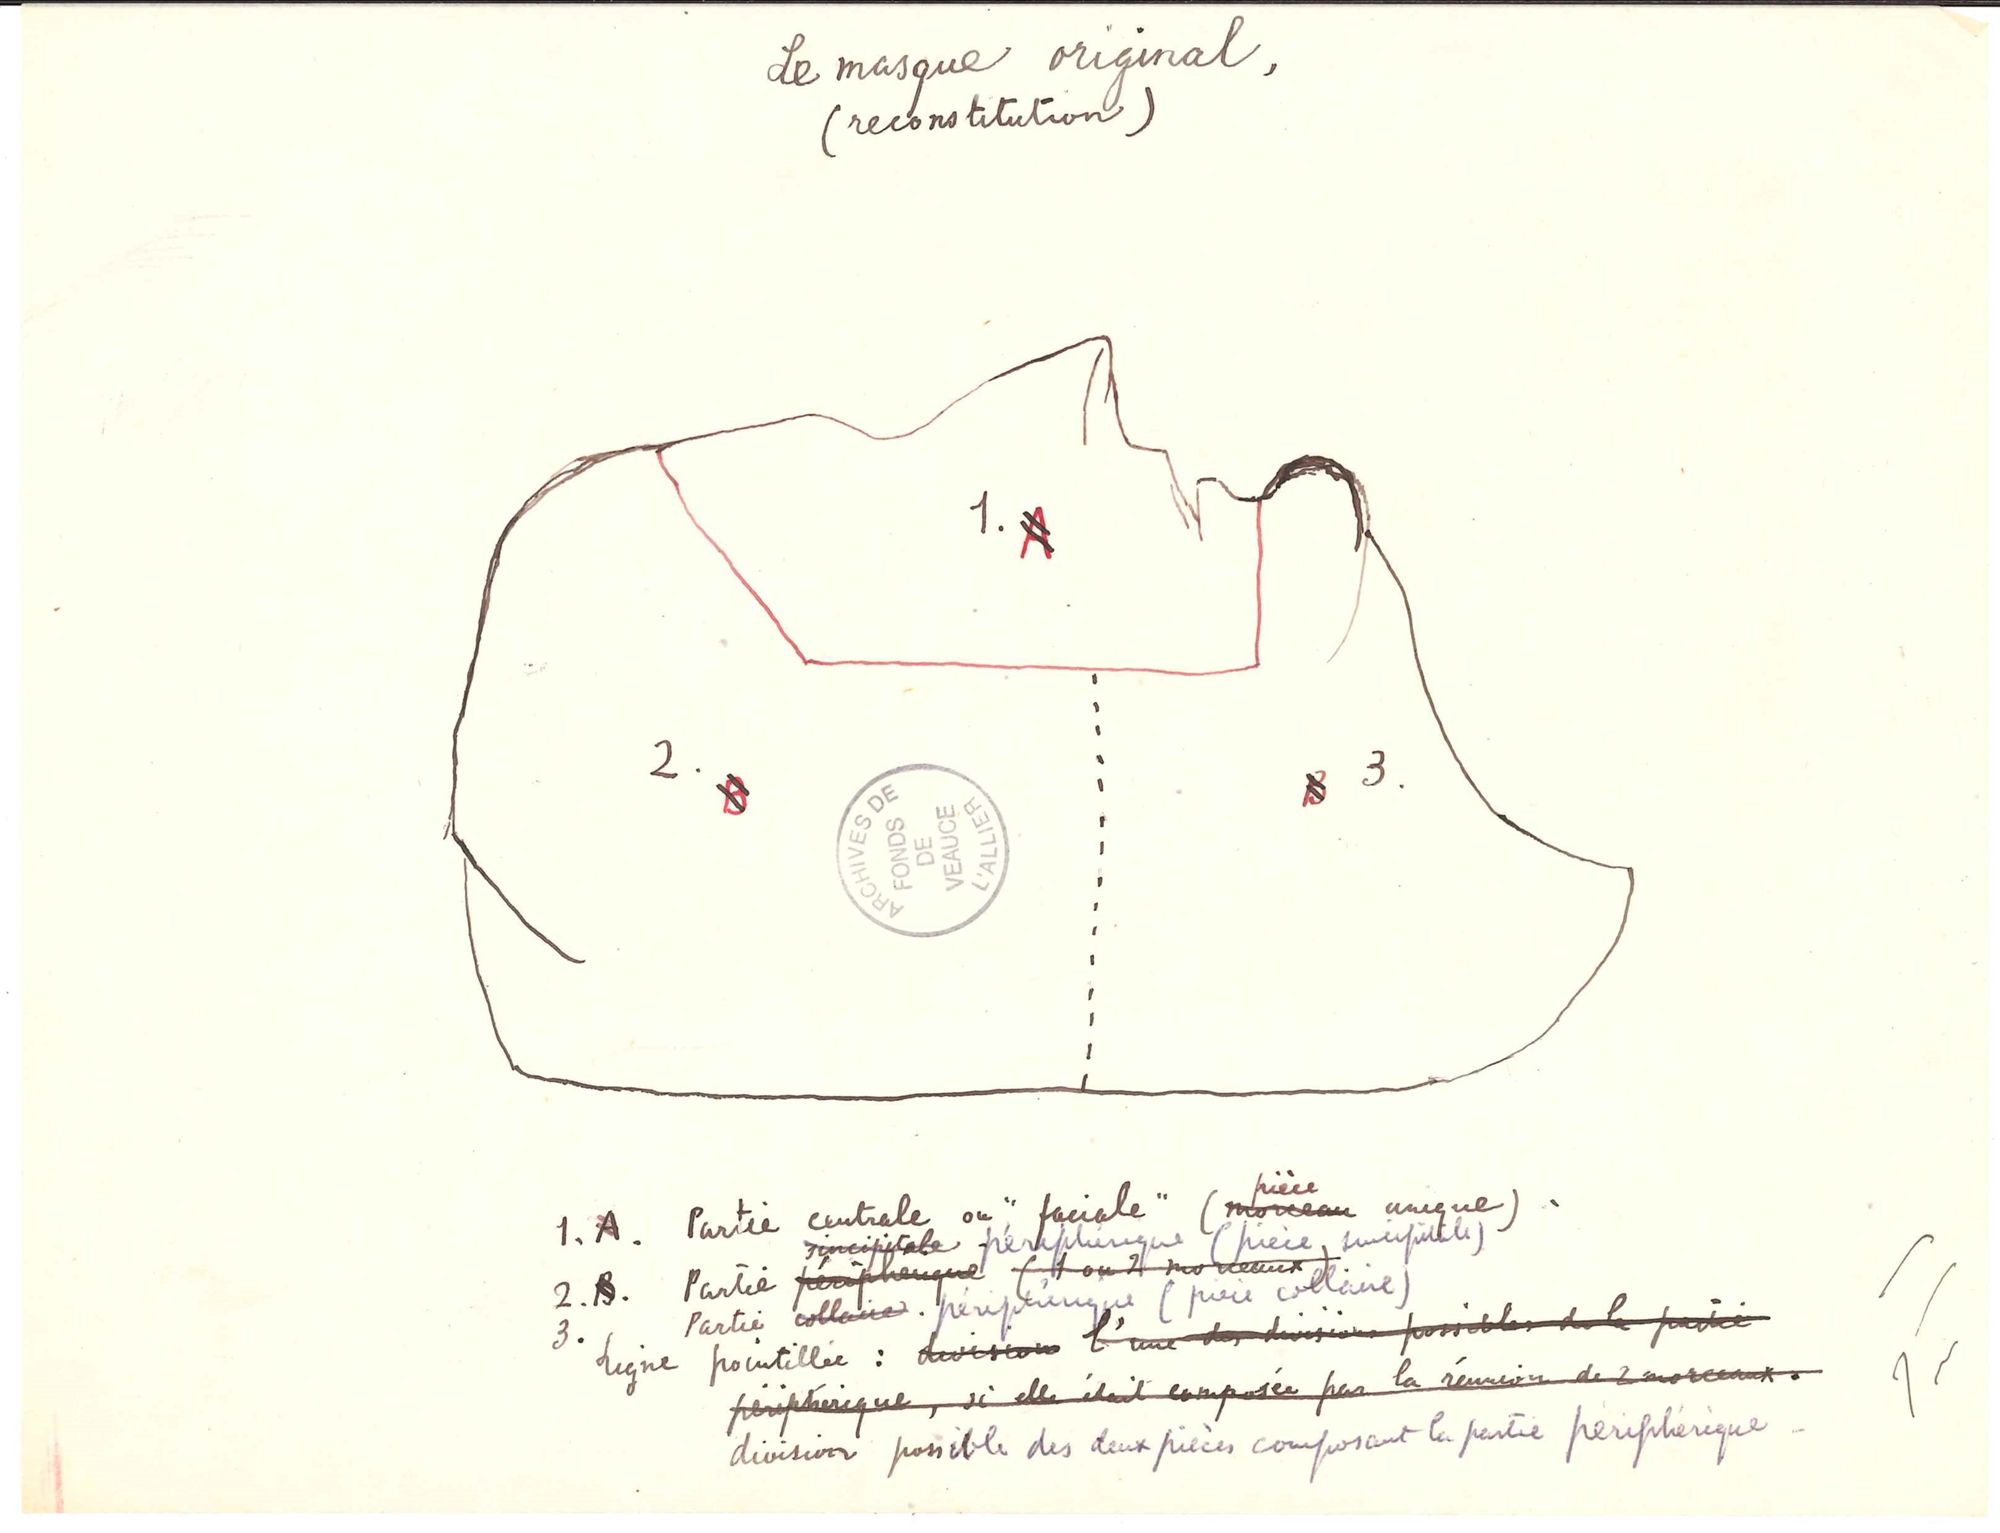 Le masque original,
(reconstitution)
1. A
2. B
B 3.
ARCHIVES DE L'ALLIER
FONDS
DE
VEAUCE
pièce
1. A. Partie centrale ou "faciale" (morceau unique).
sincipitale périphérique (pièce sincipitale)
2. B. Partie périphérique (1 ou 2 morceaux)
3. Partie collaire. périphérique (pièce collaire)
Ligne pointillée : division l'une des divisions possibles de la partie
périphérique, si elle était composée par la réunion de 2 morceaux.
division possible des deux pièces composant la partie périphérique